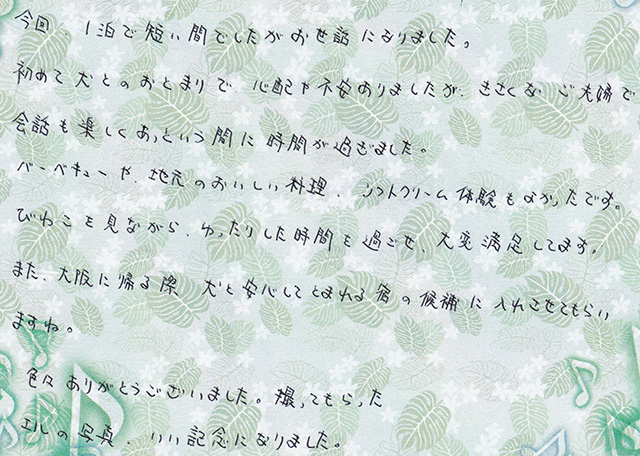 今回、1泊で短い間でしたがお世話になりました。
初めて犬とのおとまりで、心配や不安ありましたが、きさくな ご夫婦で
会話も楽しくあっという間に時間が過ぎました。
バーベキューや、地元のおいしい料理、ソフトクリーム体験もよかったです。
びわこを見ながら、ゆったりした時間を過ごせ、大変満足してます。
また、大阪に帰る際 犬と安心してとまれる宿の候補に入れさせてもらい
ますね。
色々ありがとうございました。撮ってもらった
エルの写真、いい記念になりました。